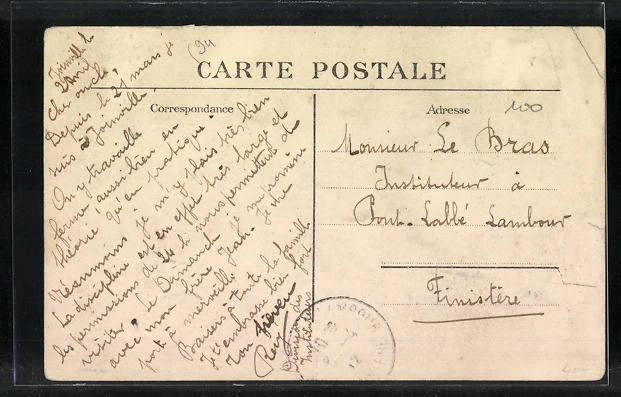 (94
CARTE POSTALE
Correspondance
Adresse
100
Joinville le
2 Avril
Cher oncle,
Depuis le 21 mars je
suis à Joinville.
On y travaille
ferme, aussi bien en
théorie qu'en pratique.
Néanmoins je m'y plais très bien
La discipline est en effet très large et
les permissions de 24 h nous permettent de
visiter. Le Dimanche je me promène
avec mon frère Jean. Je me
porte à merveille
Baisers à toute la famille
Je t'embrasse bien fort
Ton neveu
Peloton des
Instituteurs
Monsieur Le Bras
Instituteur à
Pont-Labbé Lambour
Finistère